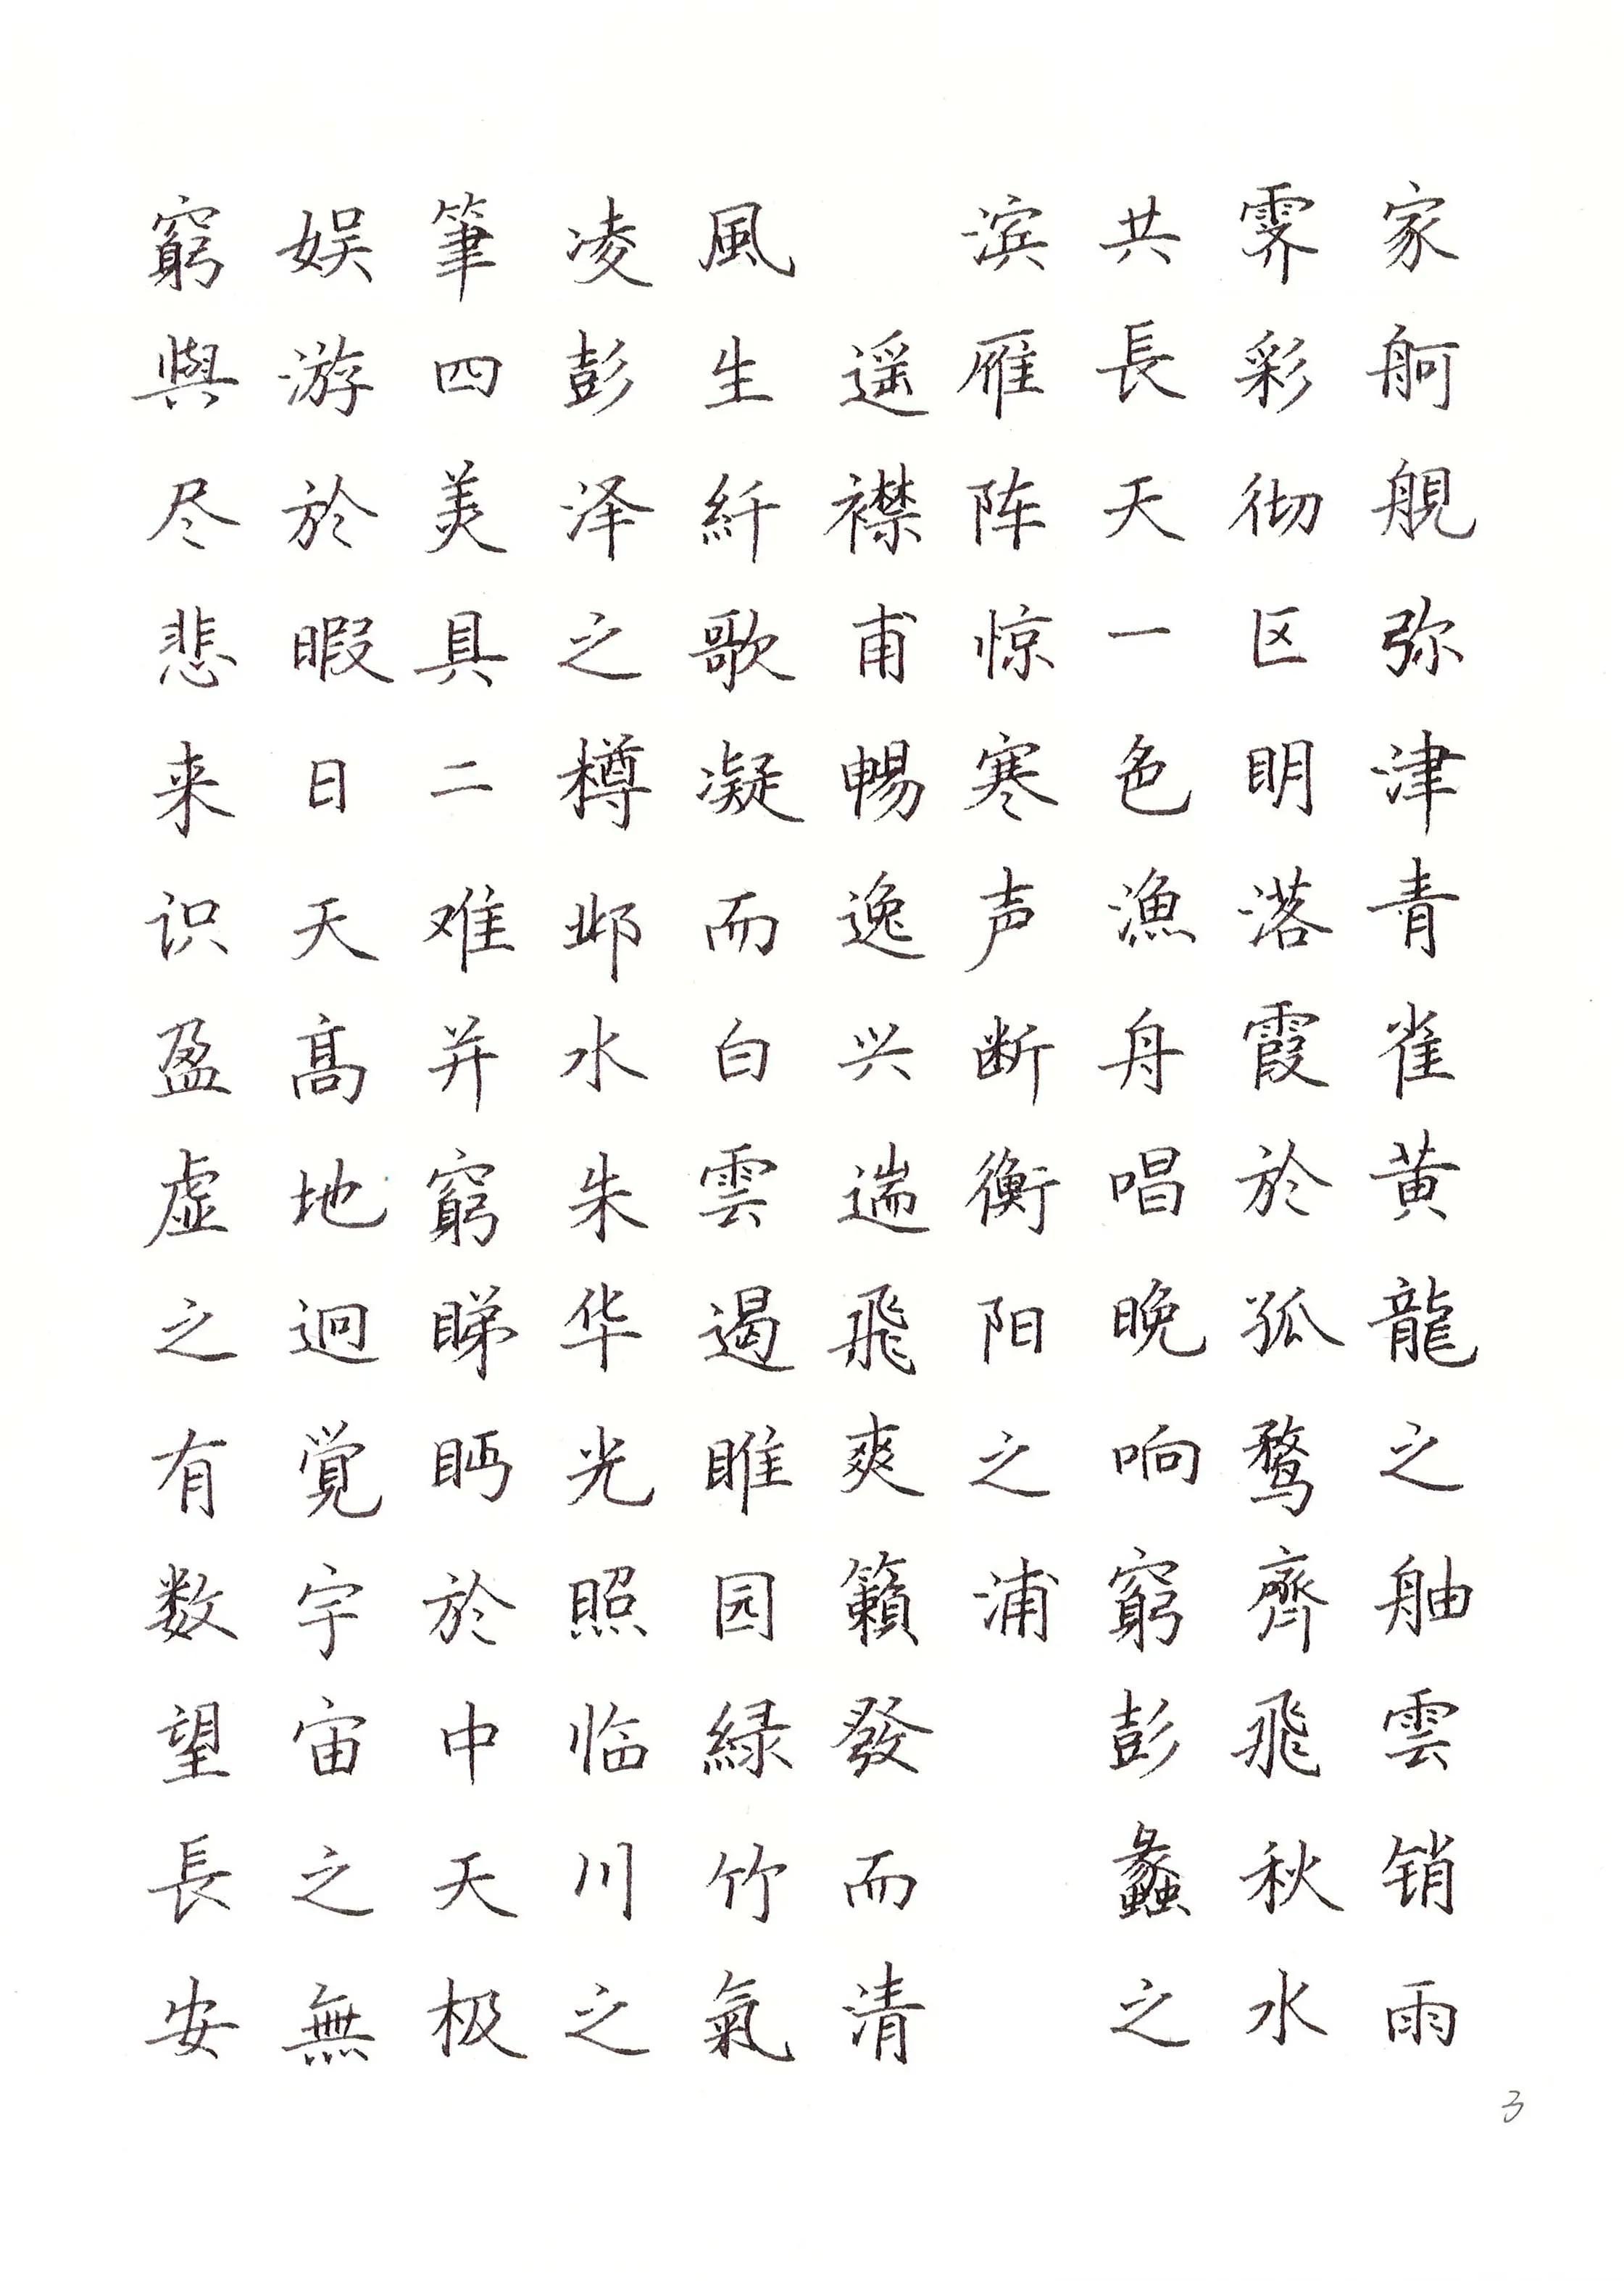 家舸舰弥津青雀黄龍之舳雲销雨
霁彩彻区明落霞於孤鹜齊飛秋水
共長天一色漁舟唱晚响窮彭蠡之
滨雁阵惊寒声断衡阳之浦
遥襟甫暢逸兴遄飛爽籟發而清
風生纤歌凝而白雲遏睢园緑竹氣
凌彭泽之樽邺水朱华光照临川之
筆四美具二难并窮睇眄於中天极
娱游於暇日天髙地迥覚宇宙之無
窮與尽悲来识盈虚之有数望長安
3